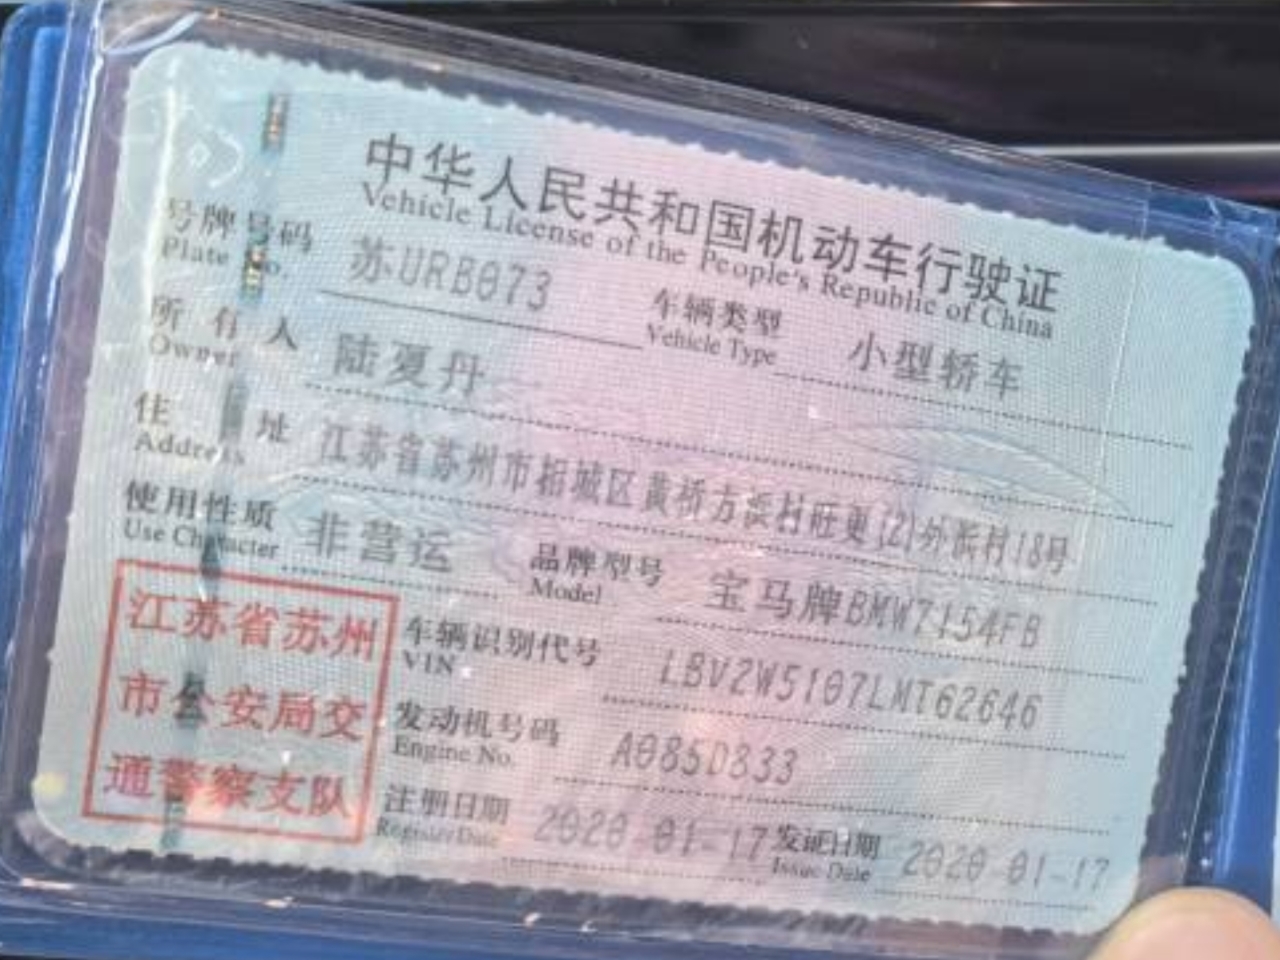 中华人民共和国机动车行驶证
Vehicle License of the People's Republic of China
号牌号码 苏URB073 车辆类型 小型轿车
Plate No. Vehicle Type
所有人 陆夏丹
Owner
住址 江苏省苏州市相城区黄桥方浜村旺更(2)外浜村18号
Address
使用性质 非营运 品牌型号 宝马牌BMW7154FB
Use Character Model
江苏省苏州
市公安局交
通警察支队
车辆识别代号 LBV2W5107LMT62646
VIN
发动机号码 A085D833
Engine No.
注册日期 2020-01-17 发证日期 2020-01-17
Register Date Issue Date